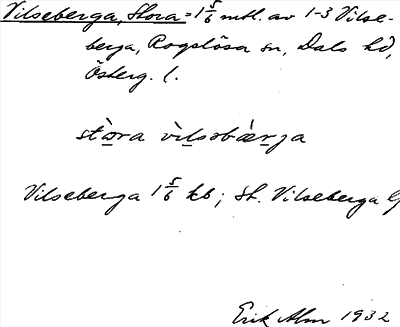 Vilseberga, Stora = 1 5/6 mtl. av 1-3 Vilse-
berga, Rogslösa sn, Dals hd,
Österg. l.
stòra vìlsobærja
Vilseberga 1 5/6 kb; St. Vilseberga G
Erik Alm 1932